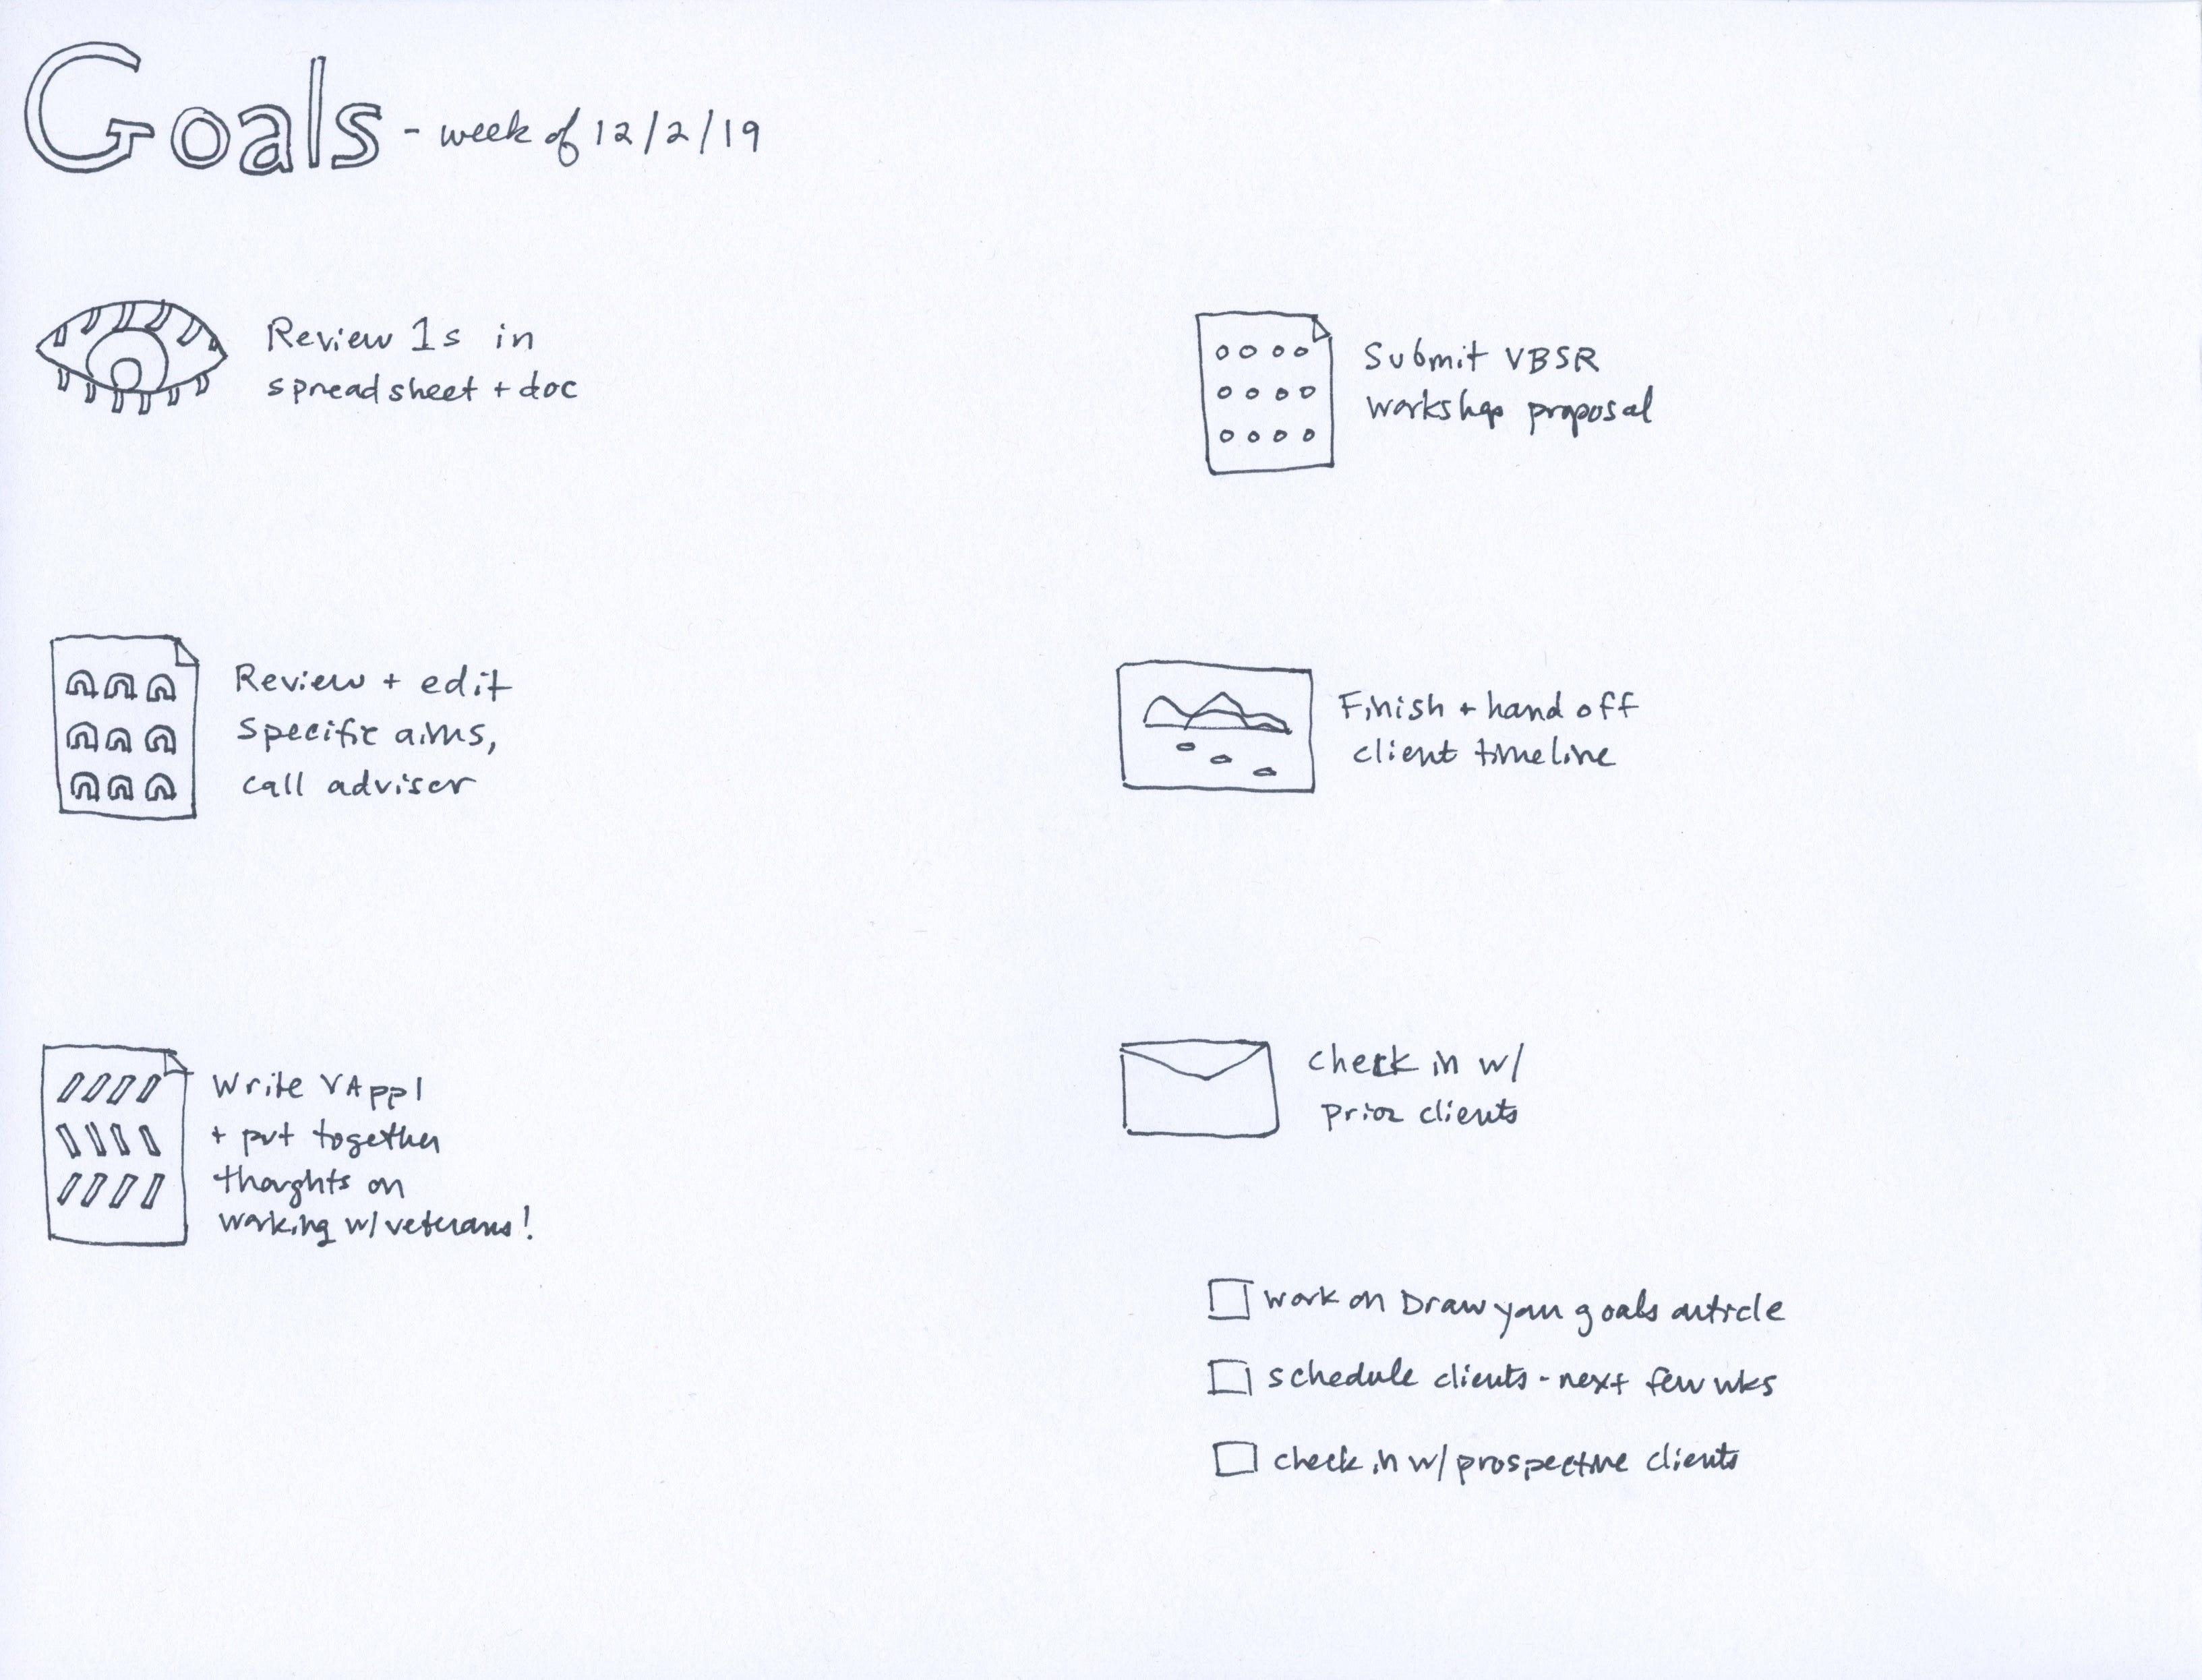 Goals - week of 12/2/19
Review 1s in
spreadsheet + doc
Review + edit
specific aims,
call adviser
Write VAppl
+ put together
thoughts on
working w/veterans!
Submit VBSR
workshop proposal
Finish + hand off
client timeline
check in w/
prior clients
work on Draw your goals article
schedule clients - next few wks
check in w/ prospective clients